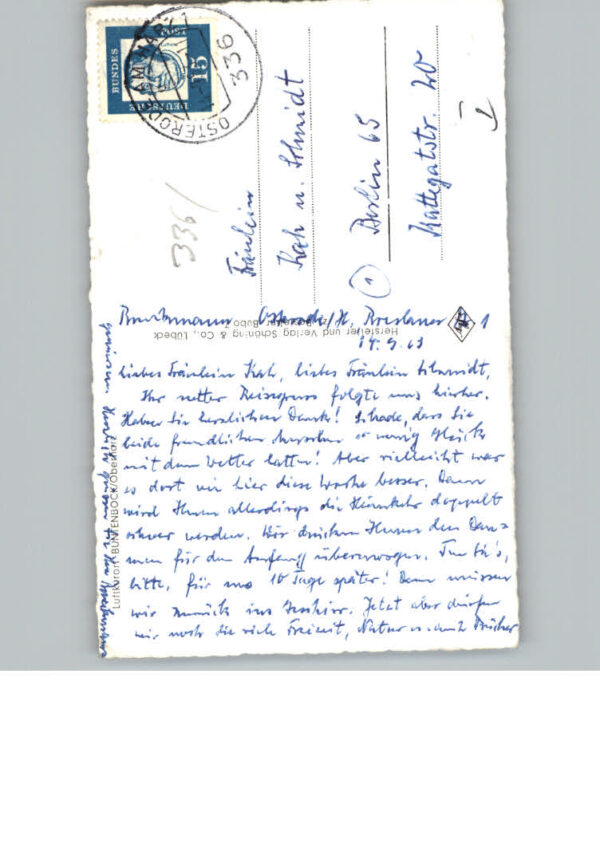 DEUTSCHE
BUNDES
15
OSTERODE AM HARZ 1
336
336/
Fräulein
Kah u. Schmidt
1 Berlin 65
Kattegatstr. 20
I
Hersteller und Verlag Schöning & Co., Lübeck
Osterode/H, Breslauer 1
Liebes Fräulein Kah, liebes Fräulein Schmidt,
Ihr netter Reisegruss folgte uns hierher.
Haben Sie herzlichen Dank! Schade, dass Sie
beide freundlichen Menschen so wenig Glück
mit dem Wetter hatten! Aber vielleicht war
es dort wie hier diese Woche besser. Dann
wird Ihnen allerdings die Heimkehr doppelt
schwer werden. Wir drücken Ihnen den Dau=
men für den Anfang überwogen. Tun Sie's,
bitte, für uns 10 Tage später! Denn müssen
wir zurück ins Geschirr. Jetzt aber dürfen
wir noch die viele Freiheit, Natur u.
geniessen. Herzlich
Luftkurort BUNTENBOCK/Oberharz